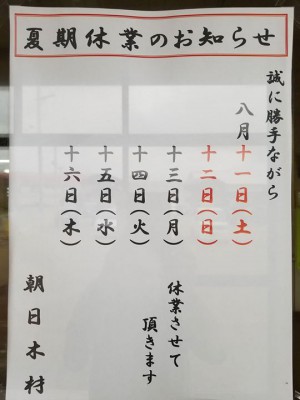 夏期休業のお知らせ
誠に勝手ながら
八月十一日(土)
十二日(日)
十三日(月)
十四日(火)
十五日(水)
十六日(木)
休業させて
頂きます
朝日木材